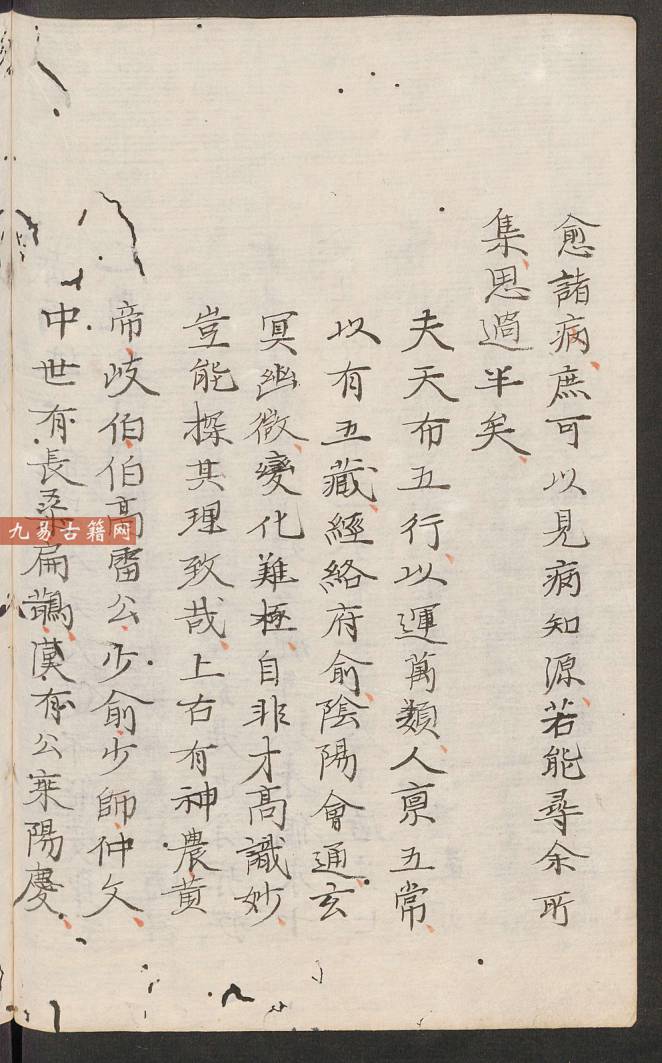 愈諸病、庶可以見病知源、若能尋余所
集、思過半矣、
夫天布五行、以運萬類、人稟五常、
以有五藏、經絡府俞、陰陽會通、玄
冥幽微、變化難極、自非才高識妙
豈能探其理致哉、上古有神農黃
帝、岐伯、伯高、雷公、少俞、少師、仲文、
中世有長桑扁鵲、漢有公乘陽慶、
九易古籍网